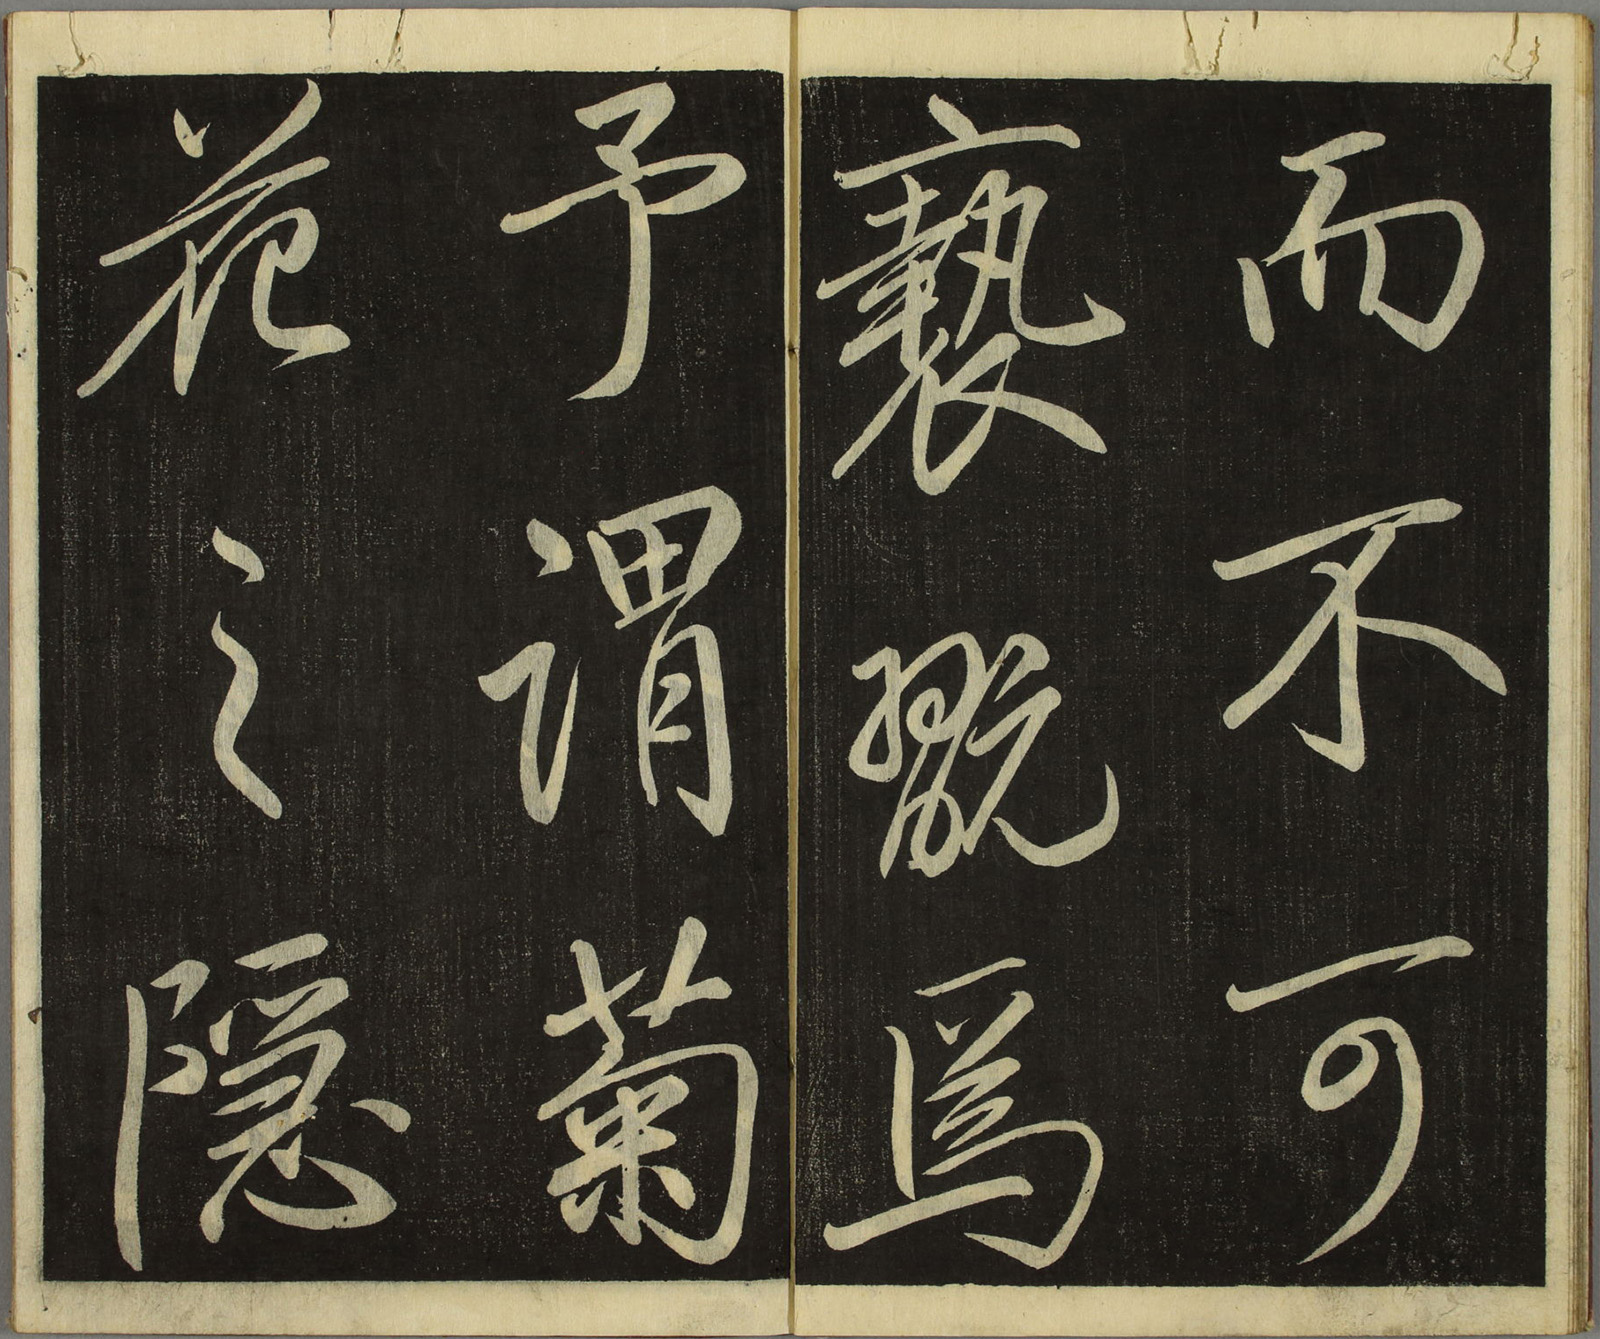 而不可
褻翫焉
予謂菊
花之隱